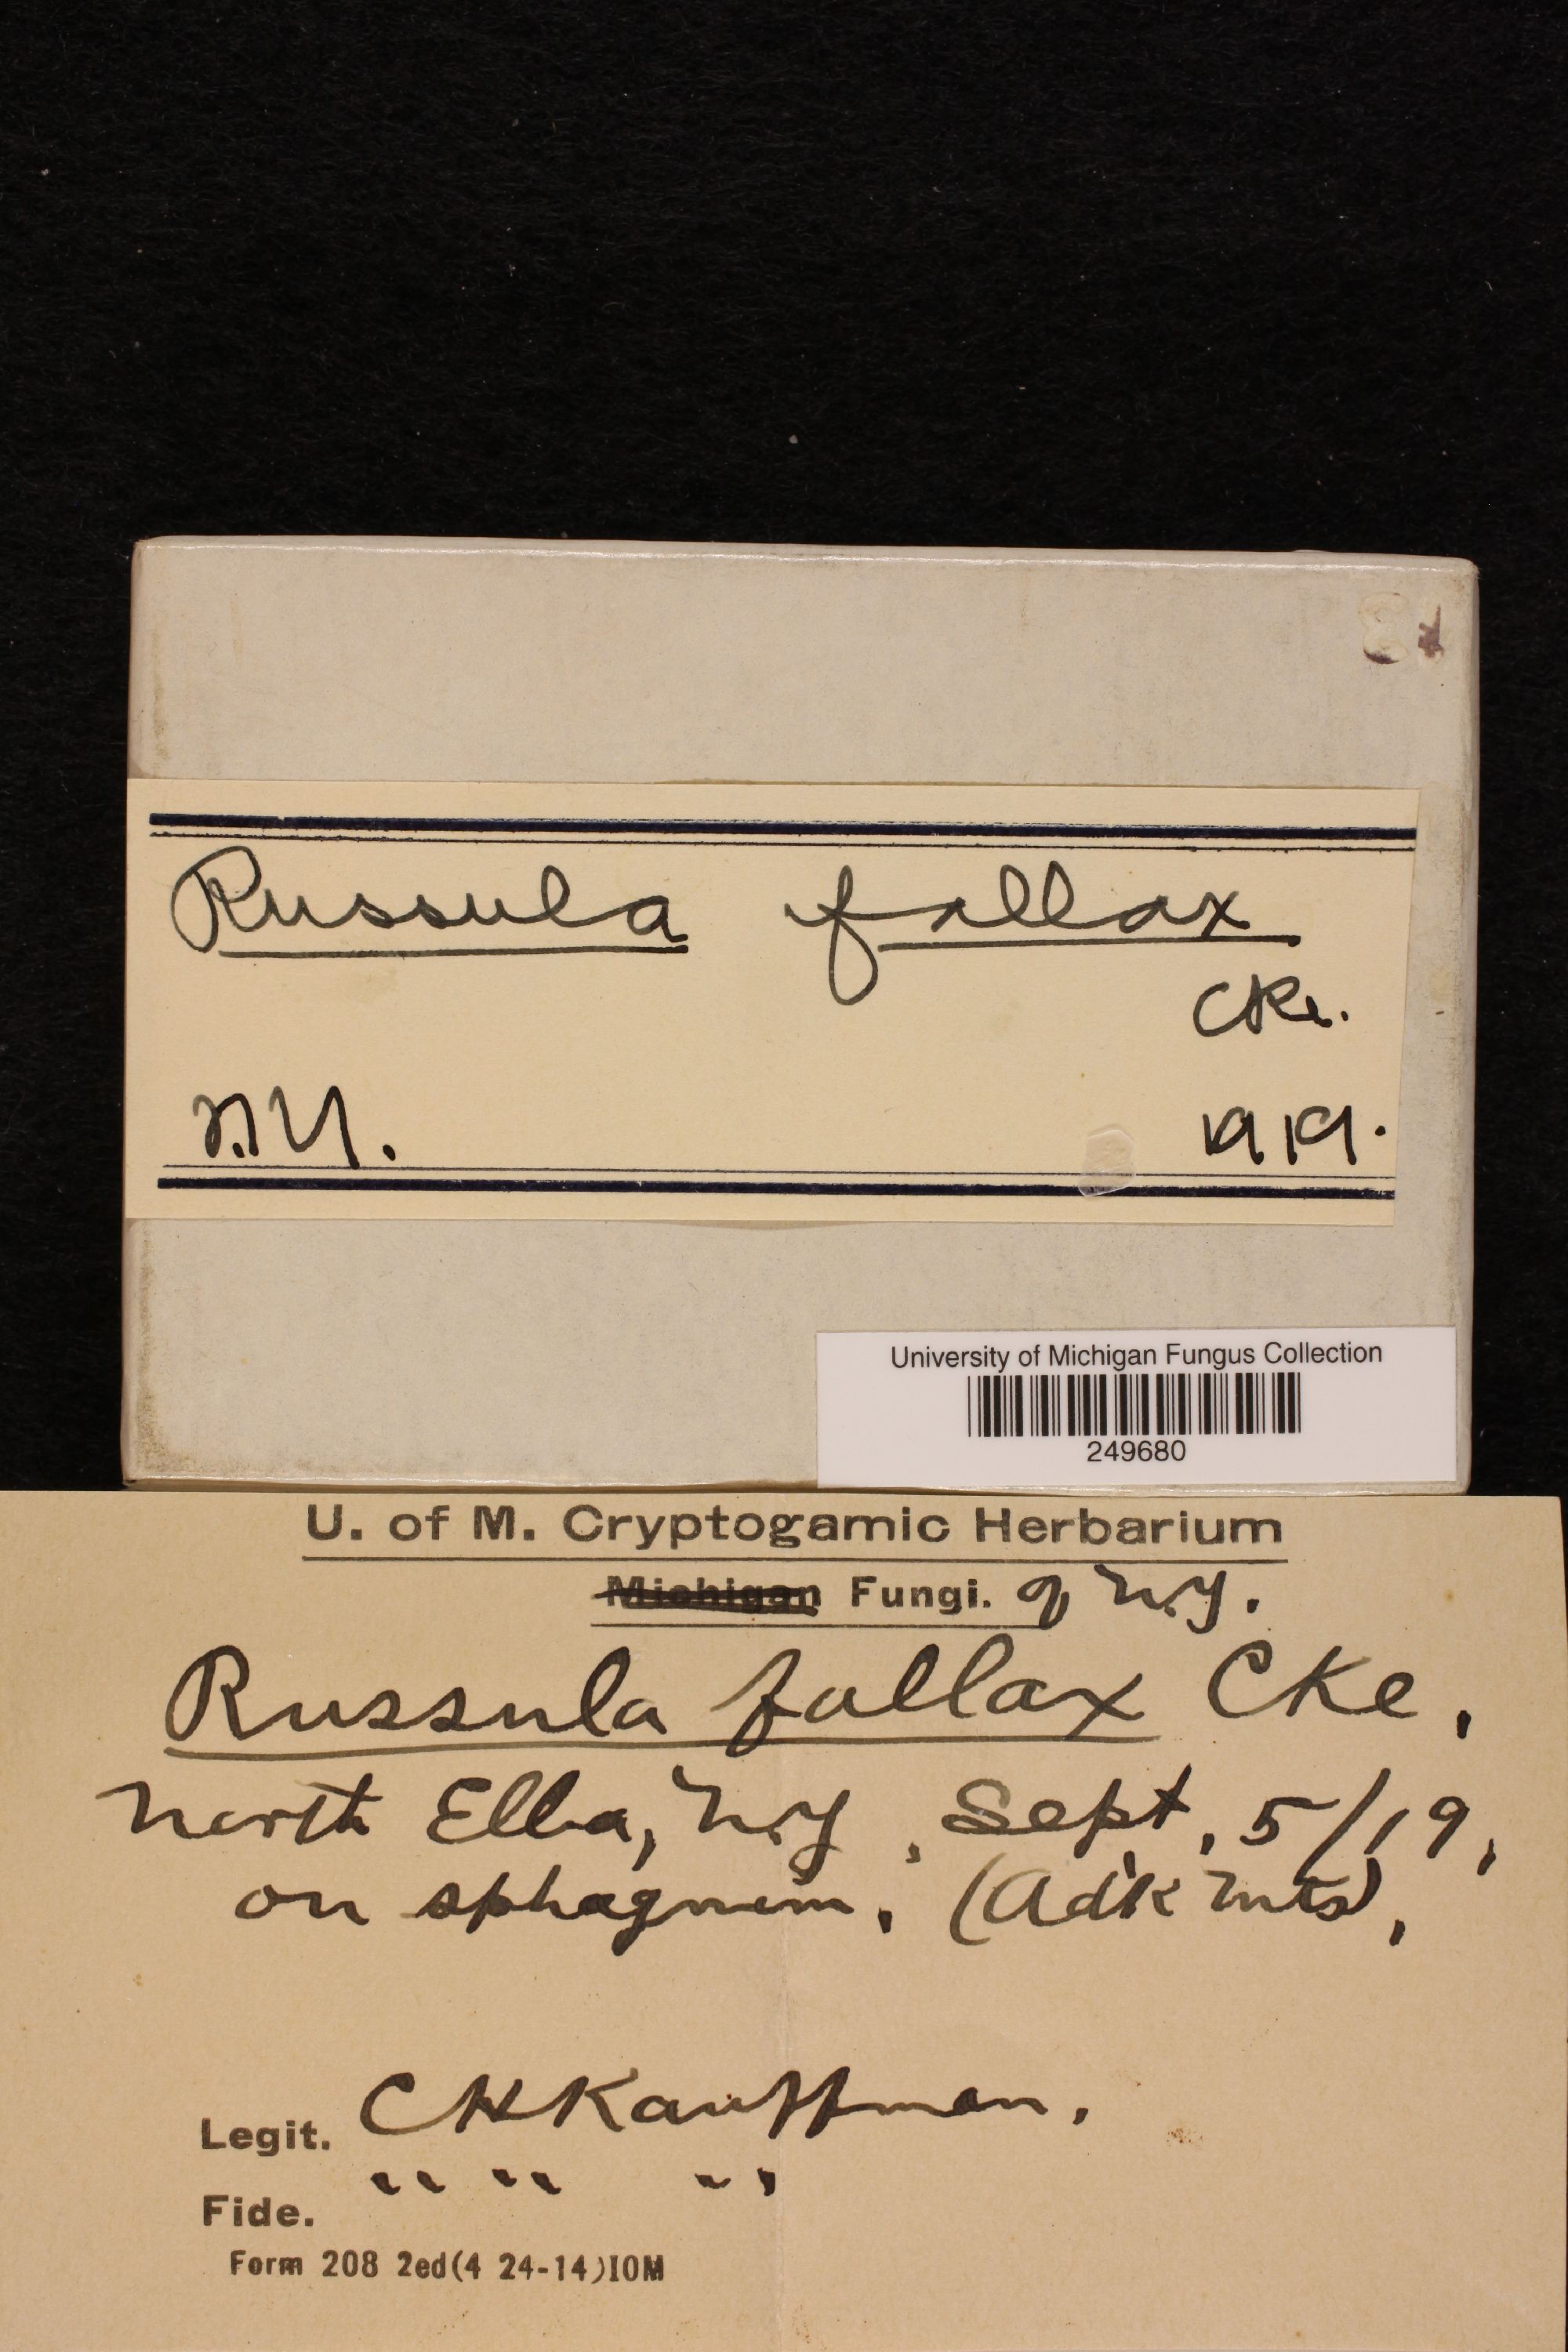 Russula fallax
Cke.
N.Y. 1919.
University of Michigan Fungus Collection
249680
U. of M. Cryptogamic Herbarium
Michigan Fungi. of N.Y.
Russula fallax CKe.
North Elba, N.Y., Sept. 5/19,
on sphagnum. (Ad'k Mts),
Legit. CHKauffman.
Fide. " " "
Form 208 2ed(4 24-14)10M